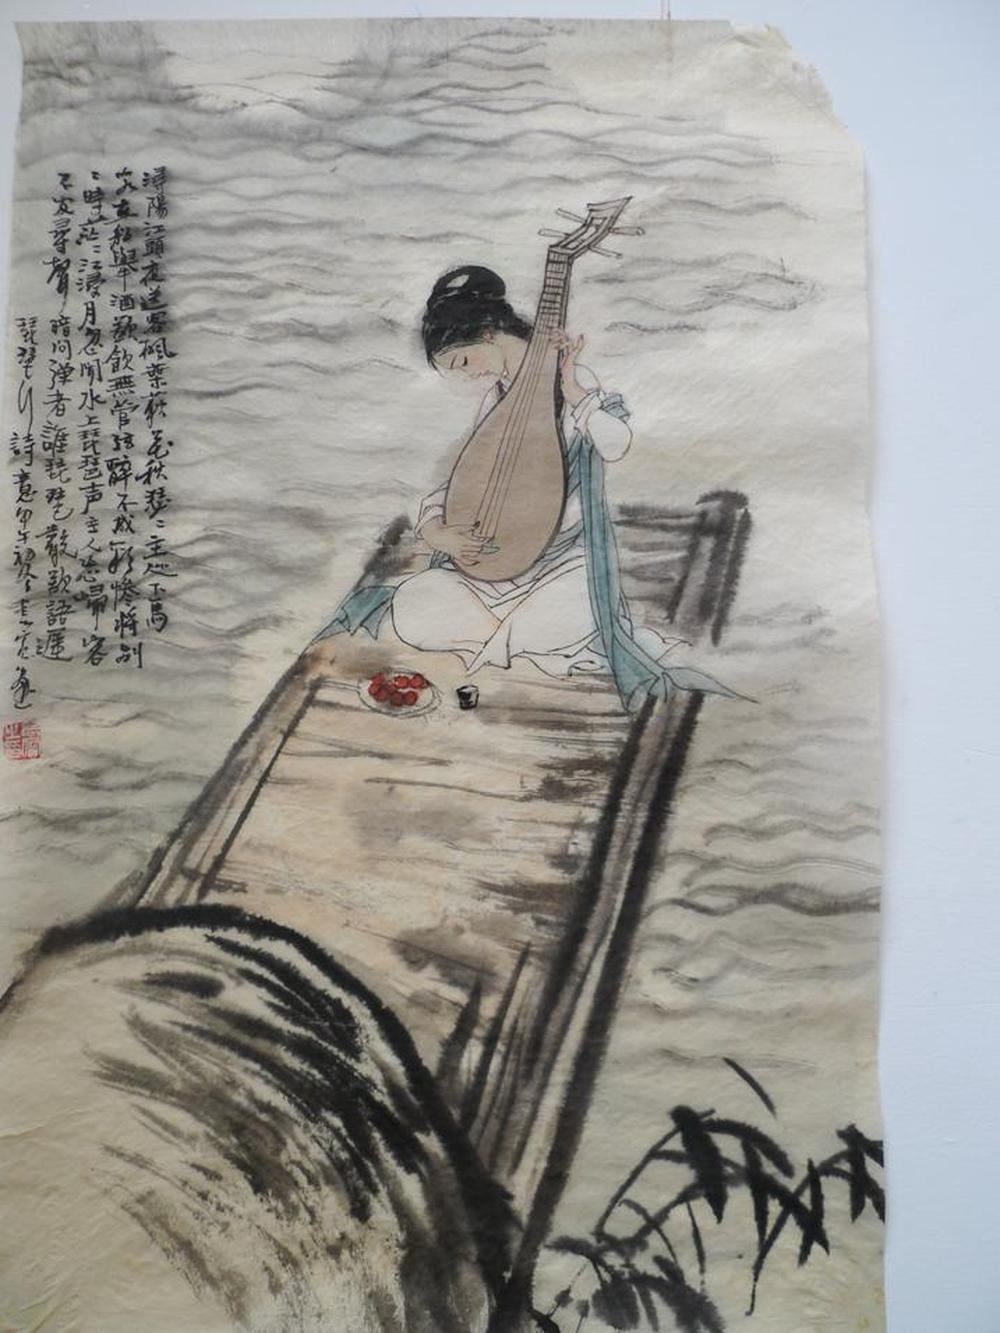 潯陽江頭夜送客楓葉荻花秋瑟〻主人下馬
客在船舉酒欲飲無管弦醉不成歡慘將別
〻時茫〻江浸月忽聞水上琵琶声主人忘歸客
不发尋聲暗问弹者誰琵琶聲欲語遲
琵琶行詩意甲午初冬画